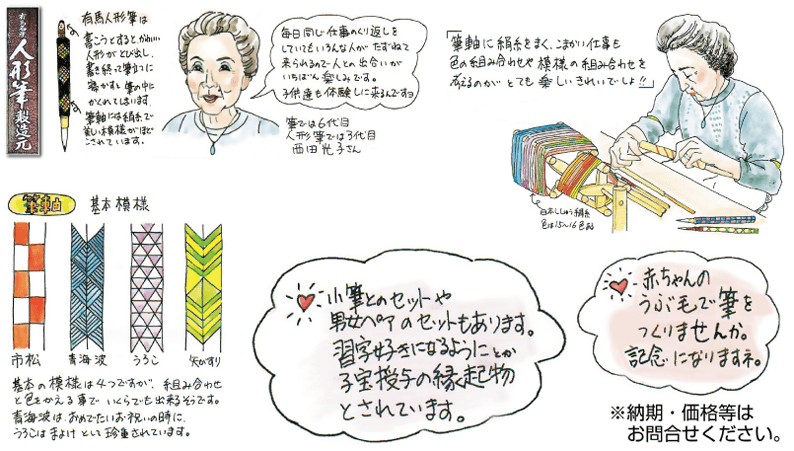 有馬名産
人形筆製造元
有馬人形筆は
書こうとすると、かわいい
人形がとび出し、
書き終って筆立てに
寝かすと筆の中に
かくれてしまいます。
筆軸には絹糸で
美しい模様がほど
こされています。
毎日同じ仕事のくり返しを
していてもいろんな人が たずねて
来られるので人との出合いが
いちばん楽しみです。
子供達も体験しに来るんですョ
筆では6代目
人形筆では3代目
西田光子さん
「筆軸に絹糸をまく、こまかい仕事も
色の組み合わせや模様の組み合わせを
考えるのがとても楽しいきれいでしょ!!」
日本ししゅう絹糸
色は15〜16色ある
筆軸
基本模様
市松
青海波
うろこ
矢がすり
基本の模様は4つですが、組み合わせ
と色をかえる事で いくらでも出来るそうです。
青海波は、おめでたいお祝いの時に、
うろこは まよけ として 珍重されています。
小筆とのセットや
男女ペアのセットもあります。
習字好きになるようにとか
子宝授与の縁起物
とされています。
赤ちゃんの
うぶ毛で筆を
つくりませんか。
記念になりますネ。
※納期・価格等は
お問合せください。